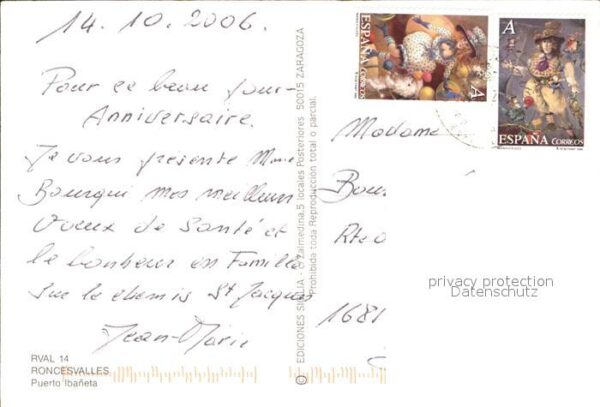 14.10.2006.
Pour ce beau jour-
Anniversaire.
Je vous présente Mme
Bourqui mes meilleurs
Vœux de Santé et
le bonheur en Famille
sur le chemis St Jacques
Jean-Marie
RVAL 14
RONCESVALLES
Puerto Ibañeta
© EDICIONES SICILIA - C/Zalmedina,5 locales Posteriores 50015 ZARAGOZA
Prohibida toda Reproducción total o parcial.
ESPAÑA
CORREOS
A
A
ESPAÑA
CORREOS
Madame
Bou
Rte
1681
privacy protection
Datenschutz